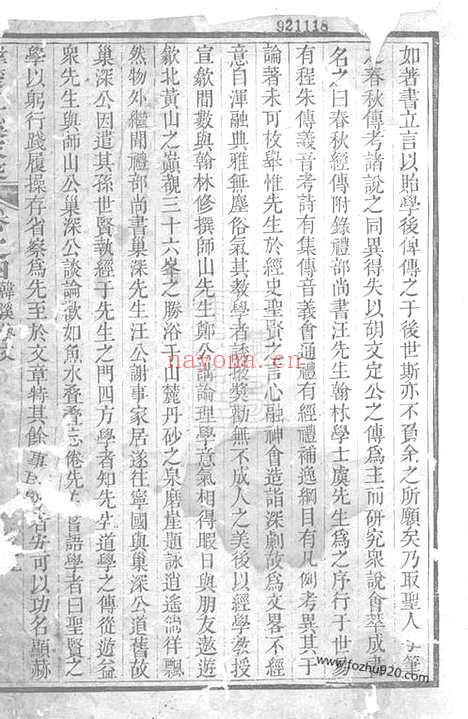 921118
如著書立言以貽學後俾傳之于後世斯亦不負余之所願矣乃取聖人手筆
之春秋傳考諸說之同異得失以胡文定公之傳爲主而研究衆說會萃成書
名之曰春秋經傳附錄禮部尚書汪先生翰林學士虞先生爲之序行于世易
有程朱傳義音考詩有集傳音義會通禮有經禮補逸綱目有凡例考異其于
論著未可枚舉惟先生於經史聖賢之言心融神會造詣深劇故爲文畧不經
意自渾融典雅無塵俗氣其教學者委曲奬勸無不成人之美後以經學教授
宣歙間數與翰林修撰師山先生鄭公講論理學意氣相得暇日與朋友遨遊
歙北黃山之巔觀三十六峯之勝浴于山麓丹砂之泉磨崖題詠逍遙徜徉飄
然物外繼聞禮部尚書巢深先生汪公謝事家居遂往寧國與巢深公道舊故
巢深公因遣其孫世賢執經于先生之門四方學者知先生道學之傳從遊益
衆先生與師山公巢深公談論歡如魚水疊疊忘倦先生嘗語學者曰聖賢之
學以躬行踐履操存省察爲先至於文章特其餘事
者安可以功名顯赫
韓溪
nayona.cn
www.fozhu920.com